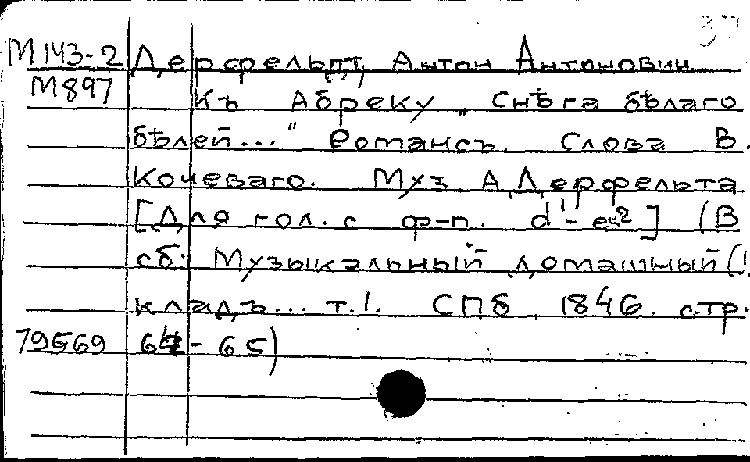 М143-2 Дерфельдт, Антон Антонович
М897 Къ Абреку „Снѣга бѣлаго
бѣлей..." Романсъ. Слова В.
Кочеваго. Муз А. Дерфельта
[Для гол. с ф-п. d'-e²] (В
сб: Музыкальный домашный (!
кладъ... т.I. СПб, 1846. стр.
79569 64-65)